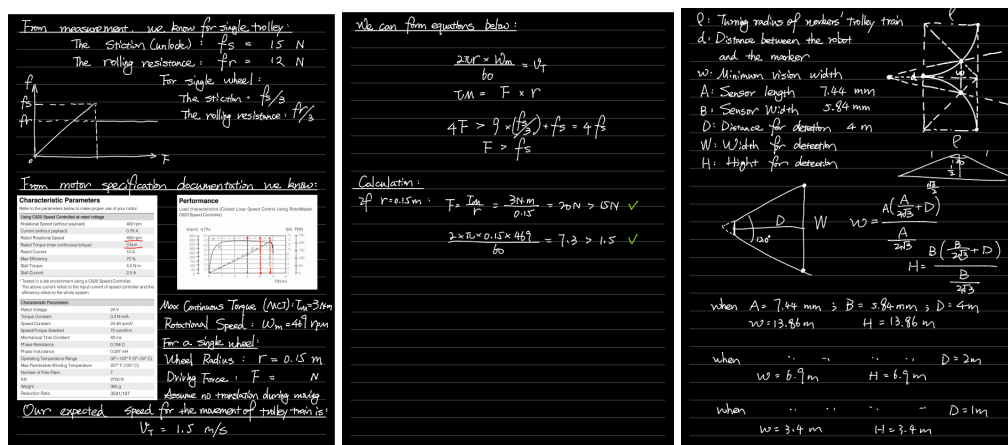 From measurement, we know for single trolley:
The Stiction (unlock): fs = 15 N
The rolling resistance: fr = 12 N
For single wheel:
The stiction: fs/3
The rolling resistance: fr/3
f
fs
fr
0
F
From motor specification documentation we know:
Characteristic Parameters
Refer to the parameters below to make proper use of your motor.
Using C620 Speed Controller at rated voltage
Rotational Speed (without payload) 482 rpm
Current (without payload) 0.78 A
Rated Rotational Speed 469 rpm
Rated Torque (max continuous torque) 3 N·m
Rated Current 10 A
Max Efficiency 70 %
Stall Torque 4.5 N·m
Stall Current 2.5 A
* Tested in a lab environment using a C620 Speed Controller.
The above current refers to the input current of speed controller and the
efficiency refers to the whole system.
Characteristic Parameters
Rated Voltage 24 V
Torque Constant 0.3 N·m/A
Speed Constant 24.48 rpm/V
Speed/Torque Gradient 72 rpm/N·m
Mechanical Time Constant
Phase Resistance 0.194 Ω
Phase Inductance 0.097 mH
Operating Temperature Range 32°~122° F (0°~50° C)
Max Permissible Winding Temperature 257° F (125° C)
Number of Pole Pairs 7
Weight 365 g
Reduction Ratio 3591/187
Performance
Load characteristics (Closed Loop Speed Control Using RoboMaster
C620 Speed Controller)
Max Continuous Torque (MCT): τm = 3 N·m
Rotational Speed: ωm = 469 rpm
For a single wheel:
Wheel Radius: r = 0.15 m
Driving Force: F = N
Assume no translation during moving
Our expected speed for the movement of trolley train is:
VT = 1.5 m/s
We can form equations below:
2πr × ωm / 60 = VT
τM = F × r
4F > 9 × (fs/3) + fs = 4 fs
F > fs
Calculation:
if r=0.15m: F = τm / r = 3N·m / 0.15 = 20N > 15N ✓
2×π×0.15×469 / 60 = 7.3 > 1.5 ✓
ρ: Turning radius of workers' trolley train
d: Distance between the robot
and the marker
w: Minimum vision width
A: Sensor length 7.44 mm
B: Sensor Width 5.84 mm
D: Distance for detection 4 m
W: Width for detection
H: Hight for detection
ρ
w
ρ
D
W
120°
w = A(A/2√3 + D) / (A/2√3)
H = B(B/2√3 + D) / (B/2√3)
when A = 7.44 mm; B = 5.84 mm; D = 4m
w = 13.86 m H = 13.86 m
when " " " " D = 2m
w = 6.9 m H = 6.9 m
when " " " " D = 1m
w = 3.4 m H = 3.4 m